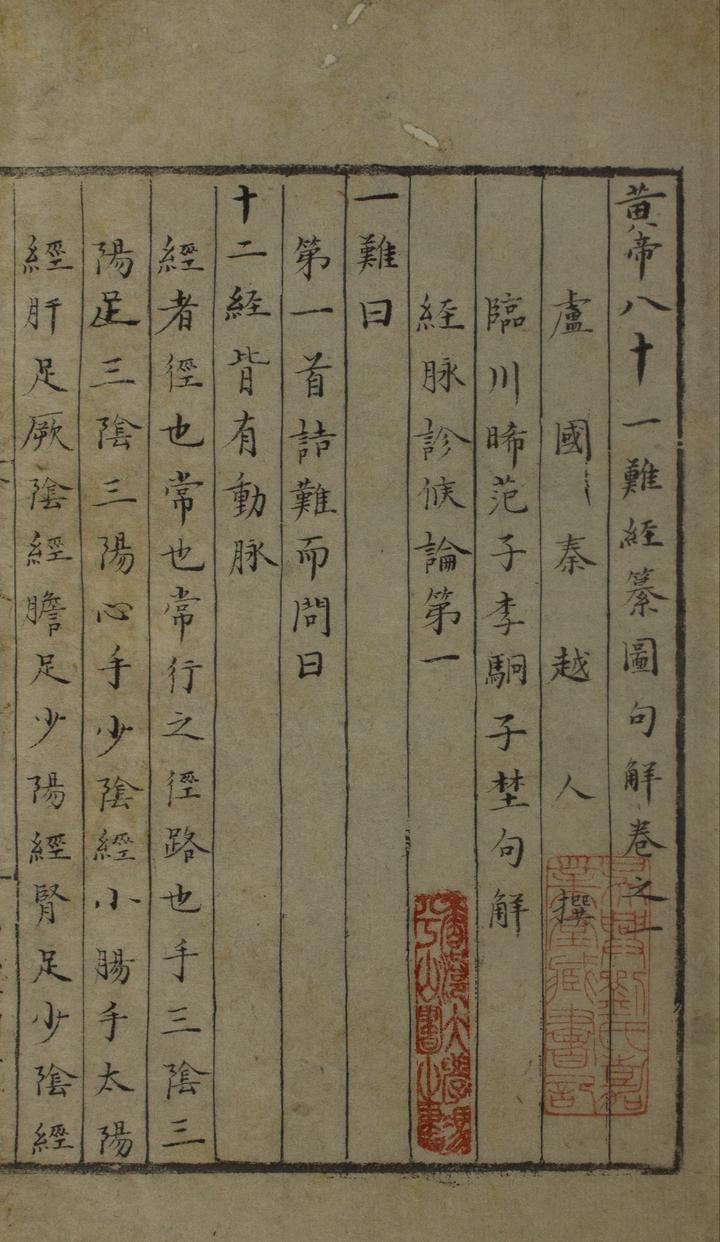 黄帝八十一難經纂圖句解卷之一
盧國秦越人撰
臨川晞范子李駉子埜句解
經脉診候論第一
一難曰
第一首詰難而問曰
十二經皆有動脉
經者徑也常也常行之徑路也手三陰三
陽足三陰三陽心手少陰經小腸手太陽
經肝足厥陰經膽足少陽經腎足少陰經